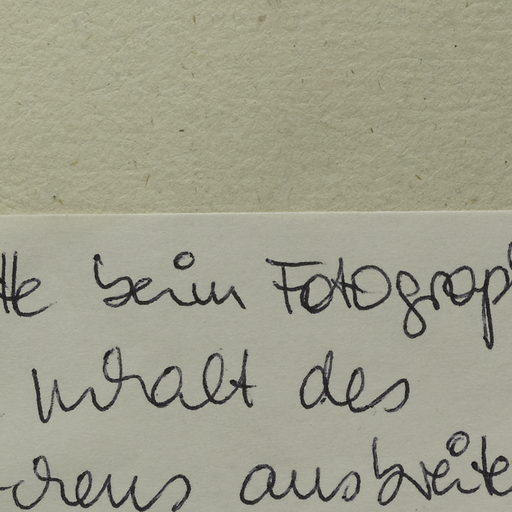 tte beim Fotograp
Inhalt des
chens ausbreite